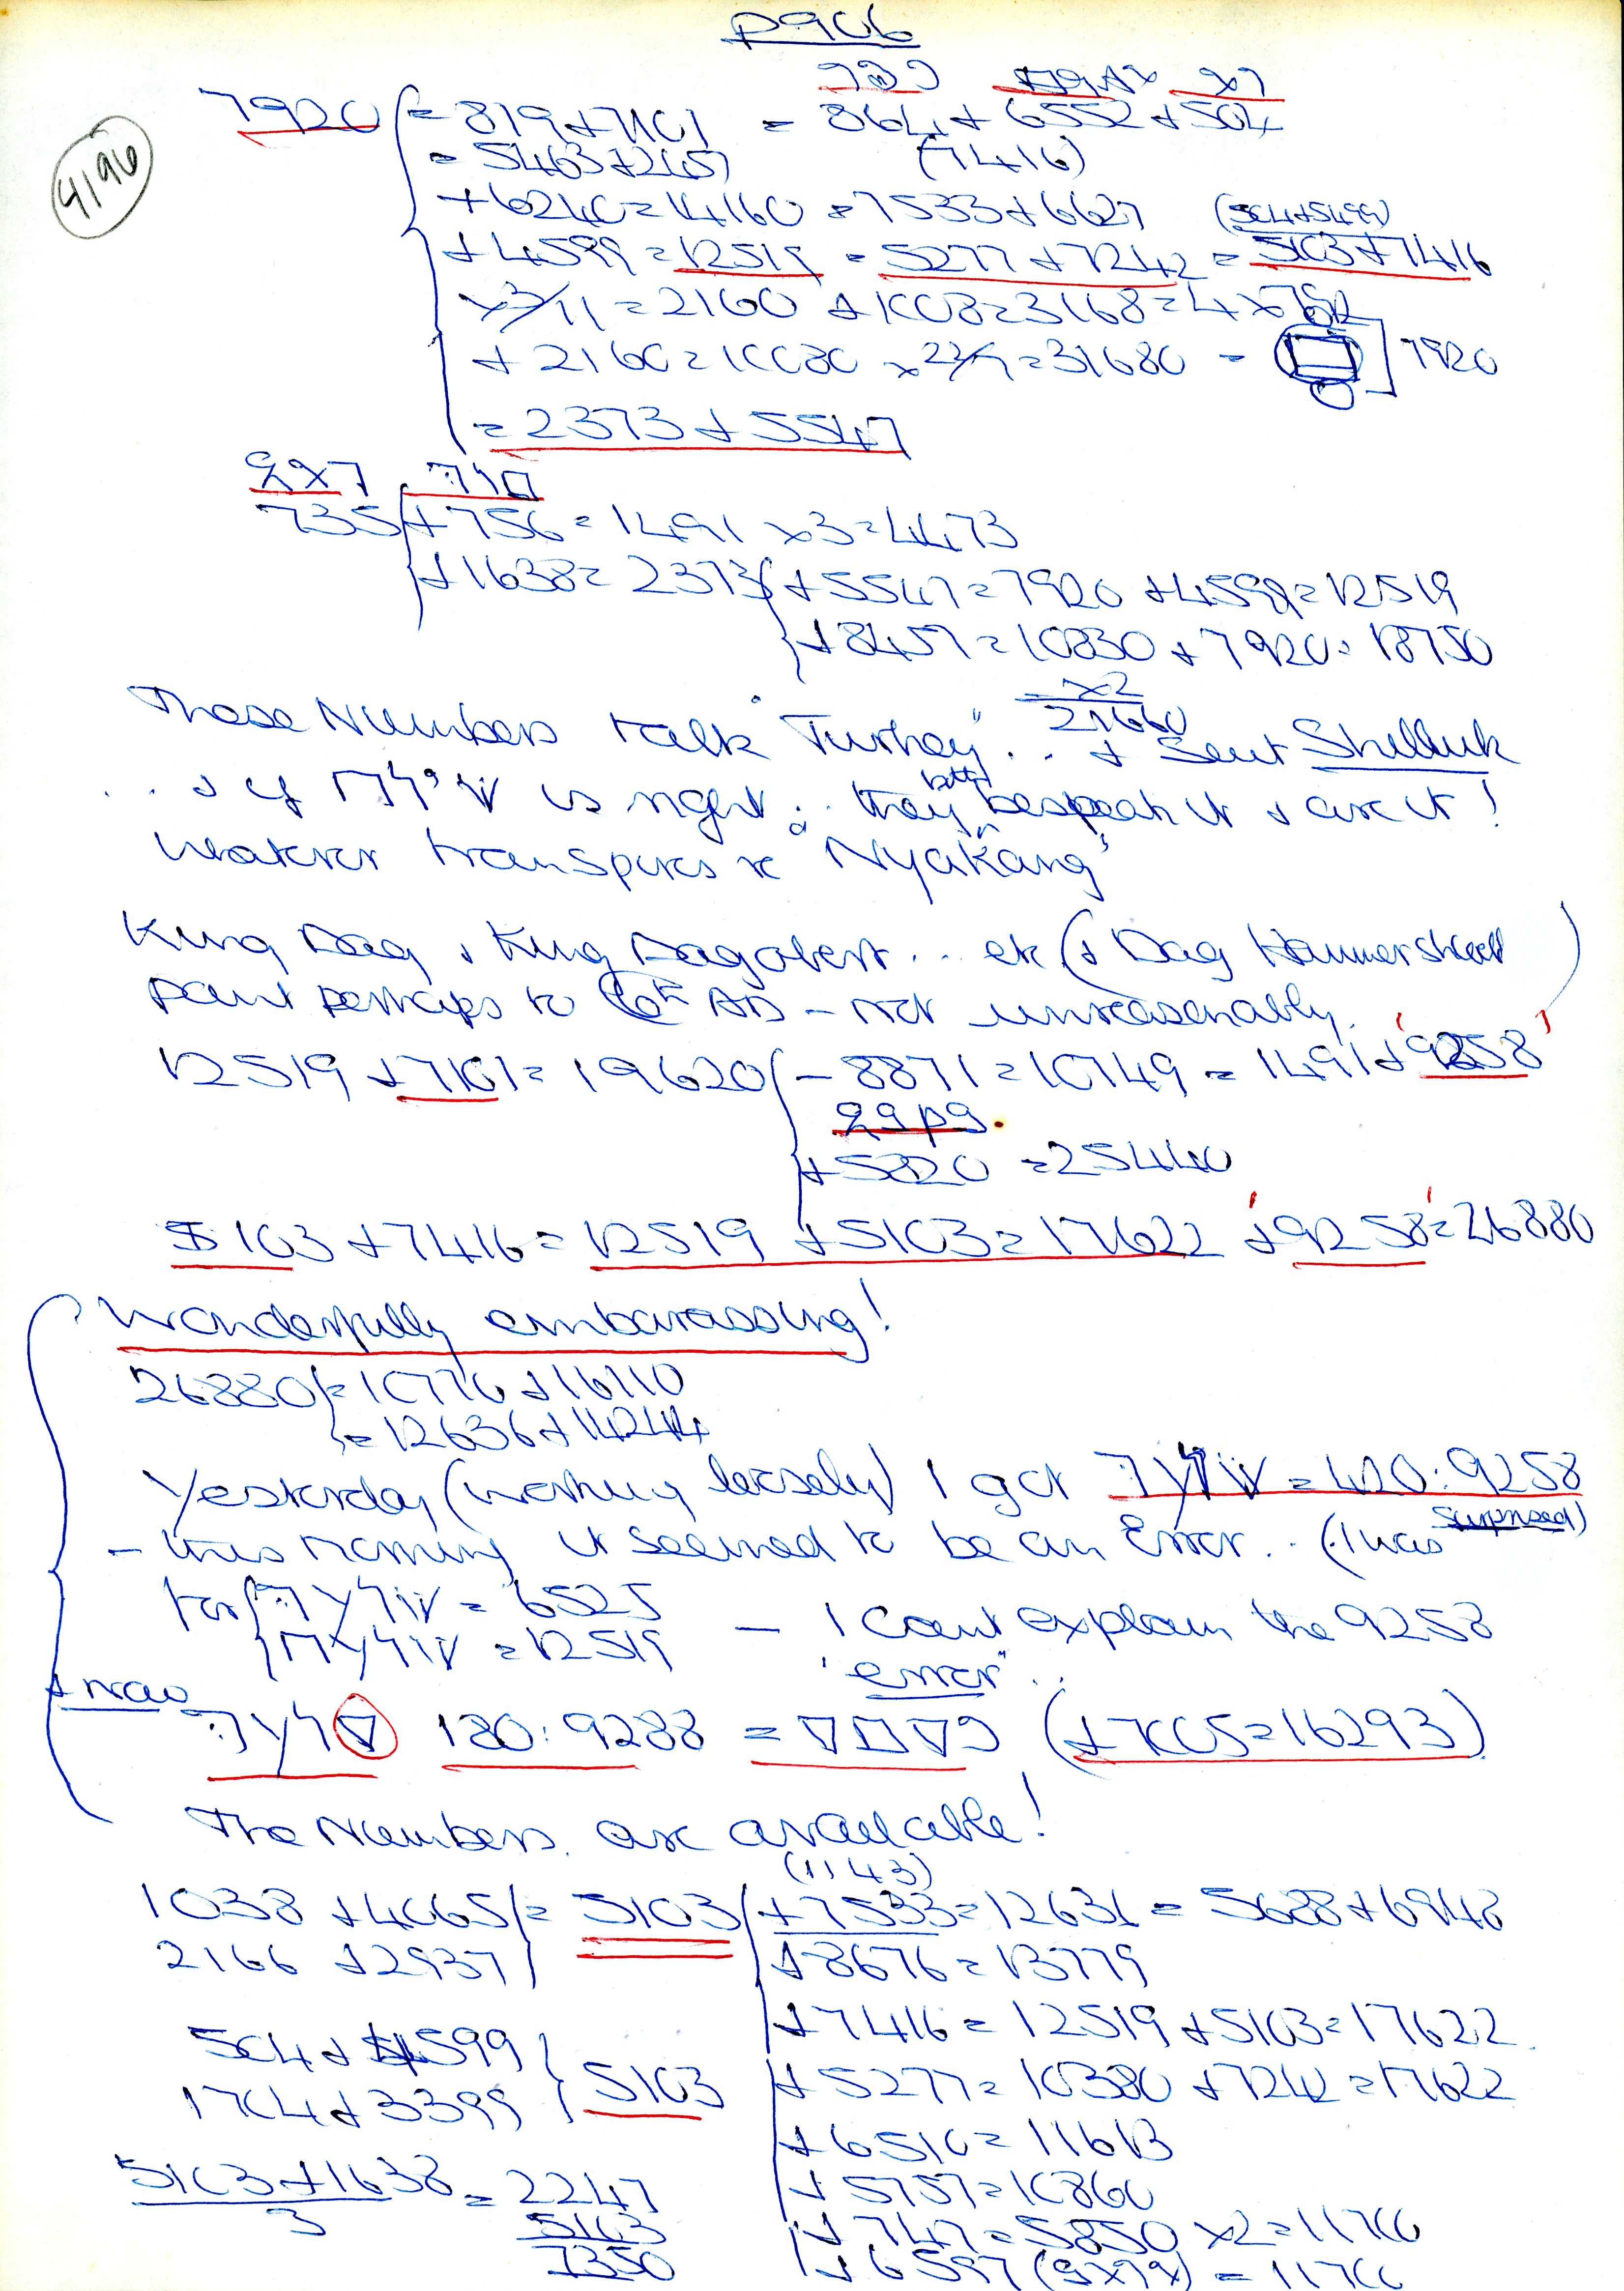 p906
4196
7920 = 819 + 7101 = 864 + 6552 + 504
= 5463 + 2457 (7416)
+ 6240 = 14160 = 7533 + 6627 (504+4599)
+ 4599 = 12519 = 5277 + 7242 = 5103 + 7416
x 3/11 = 2160 + 1008 = 3168 = 4 x 792
+ 2160 = 10080 x 22/7 = 31680 = 7920
= 2373 + 5547
735 + 756 = 1491 x 3 = 4473
+ 1638 = 2373 + 5547 = 7920 + 4599 = 12519
+ 8457 = 10830 + 7920 = 18750
x2
21660
These Numbers talk "Turkey" .. + Sent Shilluk
.. + if is right .. they both bespeak it + are it!
whatever transpires re "Nyakang"
King Dag, + King Dagobert ... etc (+ Dag Hammerskold)
point perhaps to AD - not unreasonably.
12519 + 7101 = 19620 - 8871 = 10749 = 1491 + '9258'
+ 5820 = 25440
5103 + 7416 = 12519 + 5103 = 17622 + '9258' = 26880
Wonderfully embarassing!
26880 = 10770 + 16110
= 12636 + 14244
Yesterday (working loosely) I got = 420 : 9258
- this morning it seemed to be an Error .. (I was surprised)
for = 6525 - I cant explain the 9258
= 12519 "error" ..
+ now 180 : 9288 = (+ 7005 = 16293)
The Numbers are available!
(1143)
1038 + 4065 = 5103 + 7533 = 12636 = 5688 + 6948
2166 + 2937 + 8676 = 13779
+ 7416 = 12519 + 5103 = 17622
504 + 4599
1704 + 3399 5103 + 5277 = 10380 + 7242 = 17622
+ 6510 = 11613
5103 + 1638 = 2247 + 5757 = 10860
3 5103 + 747 = 5850 x 2 = 11700
7350 + 6597 = 11700